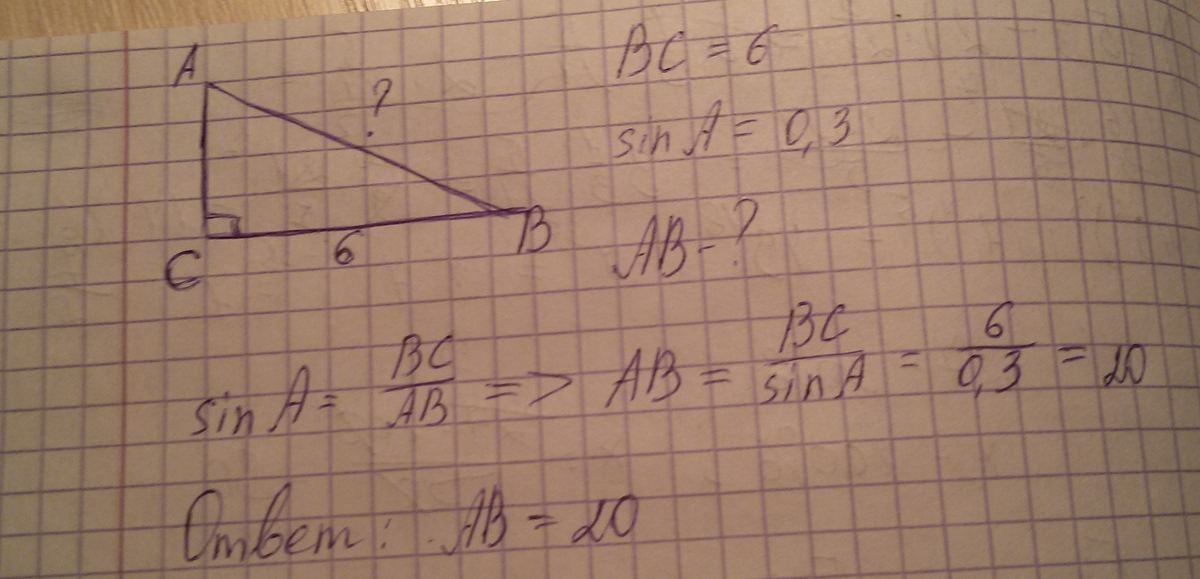 A
?
BC = 6
sin A = 0,3
C
6
B
AB - ?
sin A = BC/AB => AB = BC/sin A = 6/0,3 = 20
Ответ: AB = 20